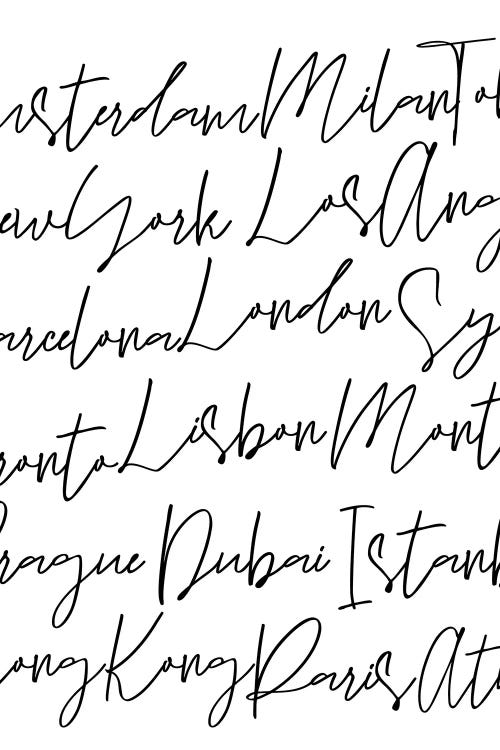 msterdam Milan To
ew York Los Ang
arcelona London Sy
ronto Lisbon Mont
rague Dubai Istanb
ong Kong Paris At